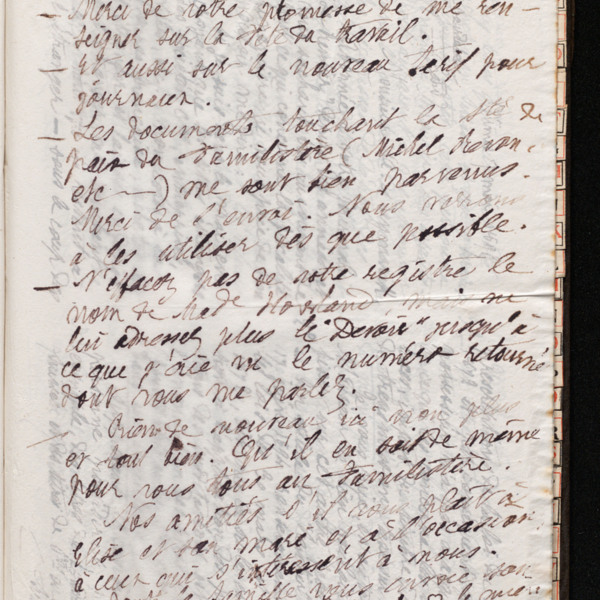 — Merci de votre promesse de me ren-
seigner sur la fête du travail.
— Et aussi sur le nouveau tarif pour
journaux.
— Les documents touchant la Sté de
paix du Familistère (Michel
etc —) me sont bien parvenus.
Merci de l'envoi. Nous verrons
à les utiliser dès que possible.
— N'effacez pas de votre registre le
nom de Made mais ne
lui adressez plus le "Devoir" jusqu'à
ce que j'aie vu le numéro retourné
dont vous me parlez.
Rien de nouveau ici non plus
et tout bien. Qu'il en soit de même
pour vous tous au Familistère.
Nos amitiés s'il vous plaît à
Elise et son mari et à l'occasion
à ceux qui s'intéressent à nous.
famille vous envoie